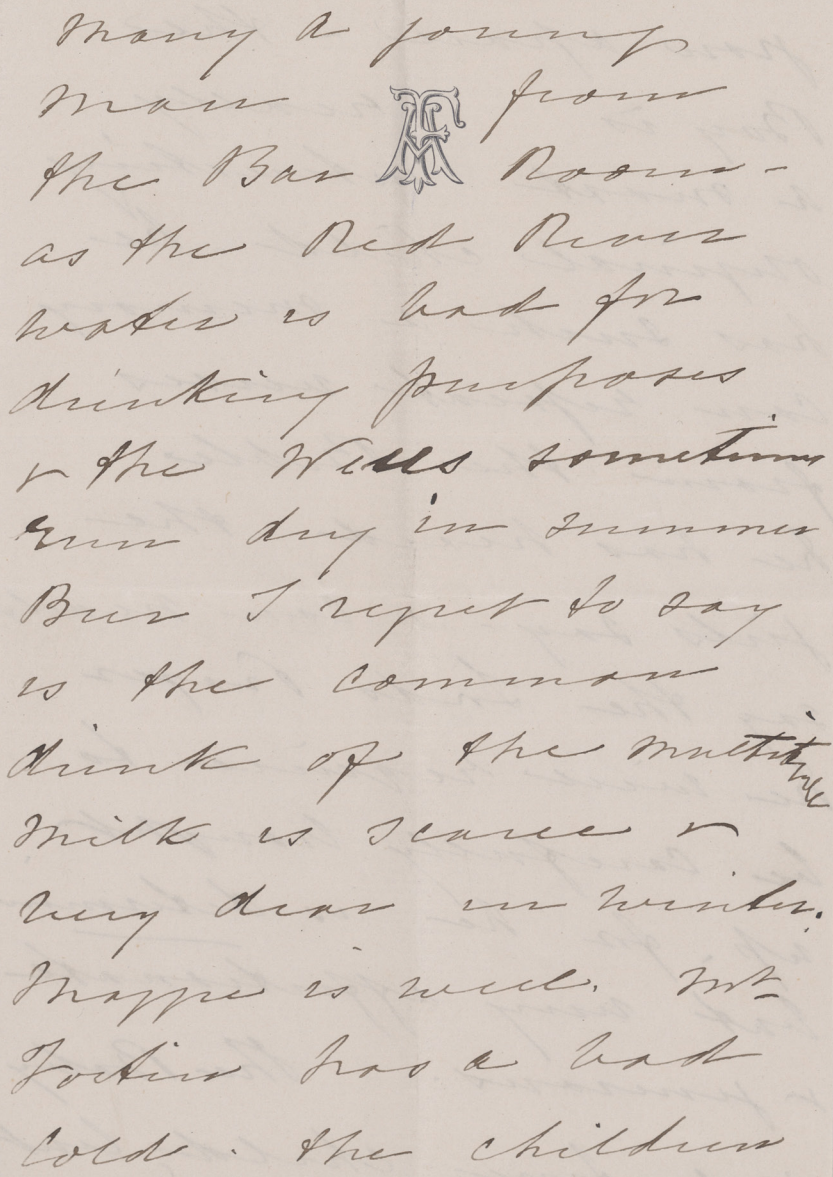 many a young
man from
the Bar Room -
as the Red River
water is bad for
drinking purposes
& the Wells sometimes
run dry in summer
Beer I regret to say
is the common
drink of the multitude
Milk is scarce &
very dear in winter.
Maggie is well. Mr
has a bad
Cold. the children